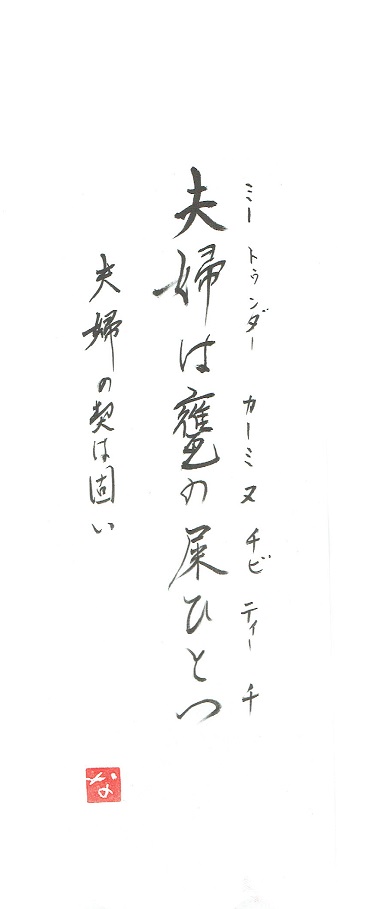 ミートゥンダー カーミヌ チビ ティーチ
夫婦は甕の屎ひとつ
夫婦の契は固い
な